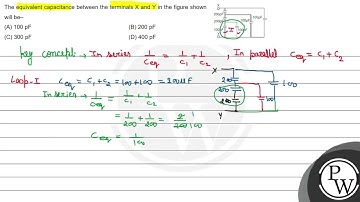 The equivalent capacitance between the terminals X and Y in the figure shown
will be–
(A) 100 pF (B) 200 pF
(C) 300 pF (D) 400 pF
Key concept → In series 1/Ceq = 1/C1 + 1/C2 , In parallel Ceq = C1 + C2
Loop-I Ceq = C1 + C2 = 100 + 100 = 200 μF
In series → 1/Ceq = 1/C1 + 1/C2
= 1/200 + 1/200 = 2/200 1/100
Ceq = 1/100
X
200
200
200
100
100
Y
PW